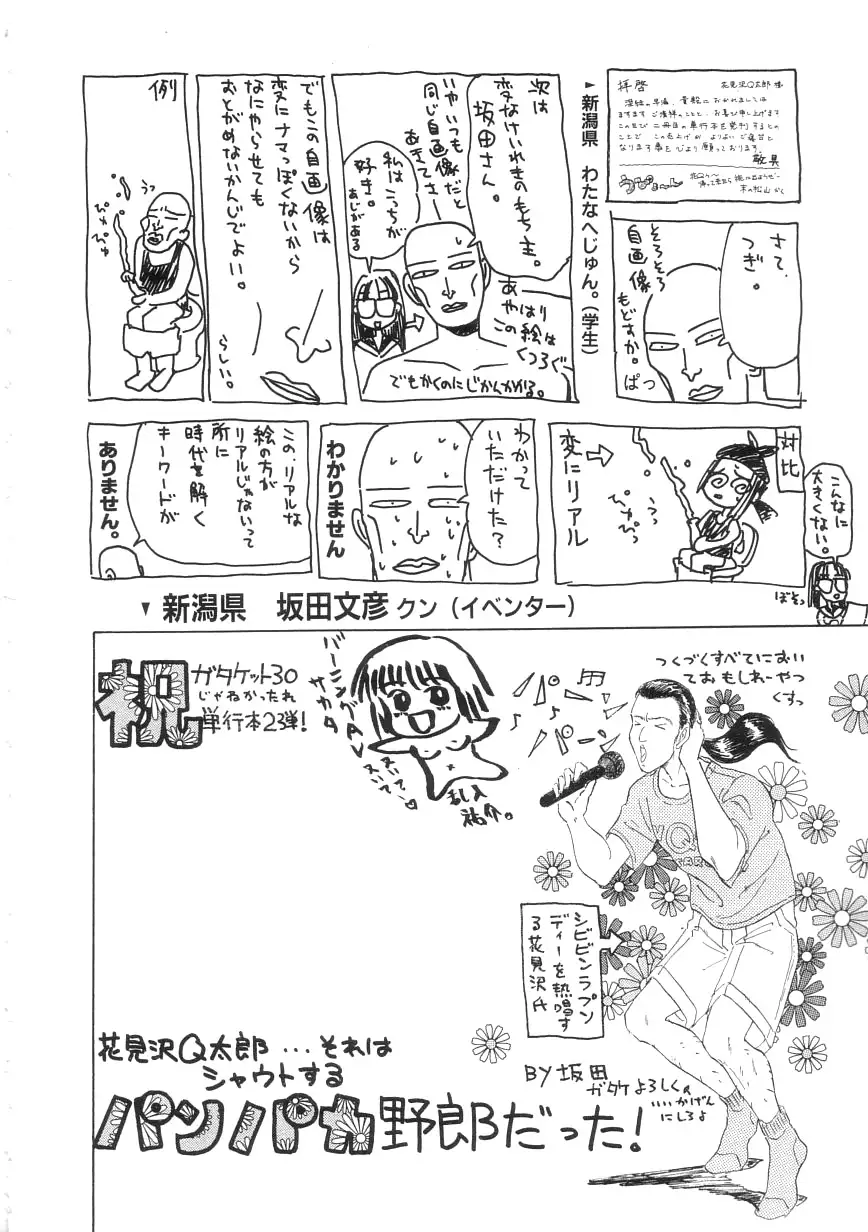 拝啓
花見沢Q太郎 様
敬具
▼新潟県 わたなべじゅん。(学生)
さて、
つぎ。
そろそろ
自画像
もどすか。
ぱっ
次は
変なけいれきのもち主。
坂田さん。
いやいつも
同じ自画像だと
あきてさー
私はこっちが
好き。
あじがある
あ
やはり
この絵は
くつろぐー
でもかくのにじかんかかる。
でもこの自画像は
変にナマっぽくないから
なにやらせても
おとがめないかんじでよい。
らしい。
例
うっ
ぴゅ
ぴゅ
対比
こんなに
大きくない。
ぼそっ
変にリアル
うっ
ぴゅぴっ
わかって
いただけた?
わかりません
この、リアルな
絵の方が
リアルじゃないって
所に
時代を解く
キーワードが
ありません。
▼新潟県 坂田文彦クン(イベンター)
祝
ガタケット30
じゃねかったれ
単行本2弾!
バーニングAV
サカタ
ヌいて、
ヌいて、
乱入
祐介。
パパ
パパーン
つくづくすべてにおい
ておもしれーやつ
くすっ
シビビンラプソ
ディーを熱唱す
る花見沢氏
花見沢Q太郎…それは
シャウトする
パンパカ野郎だった!
BY坂田
ガタケよろしくの
いいかげん
にしろよ